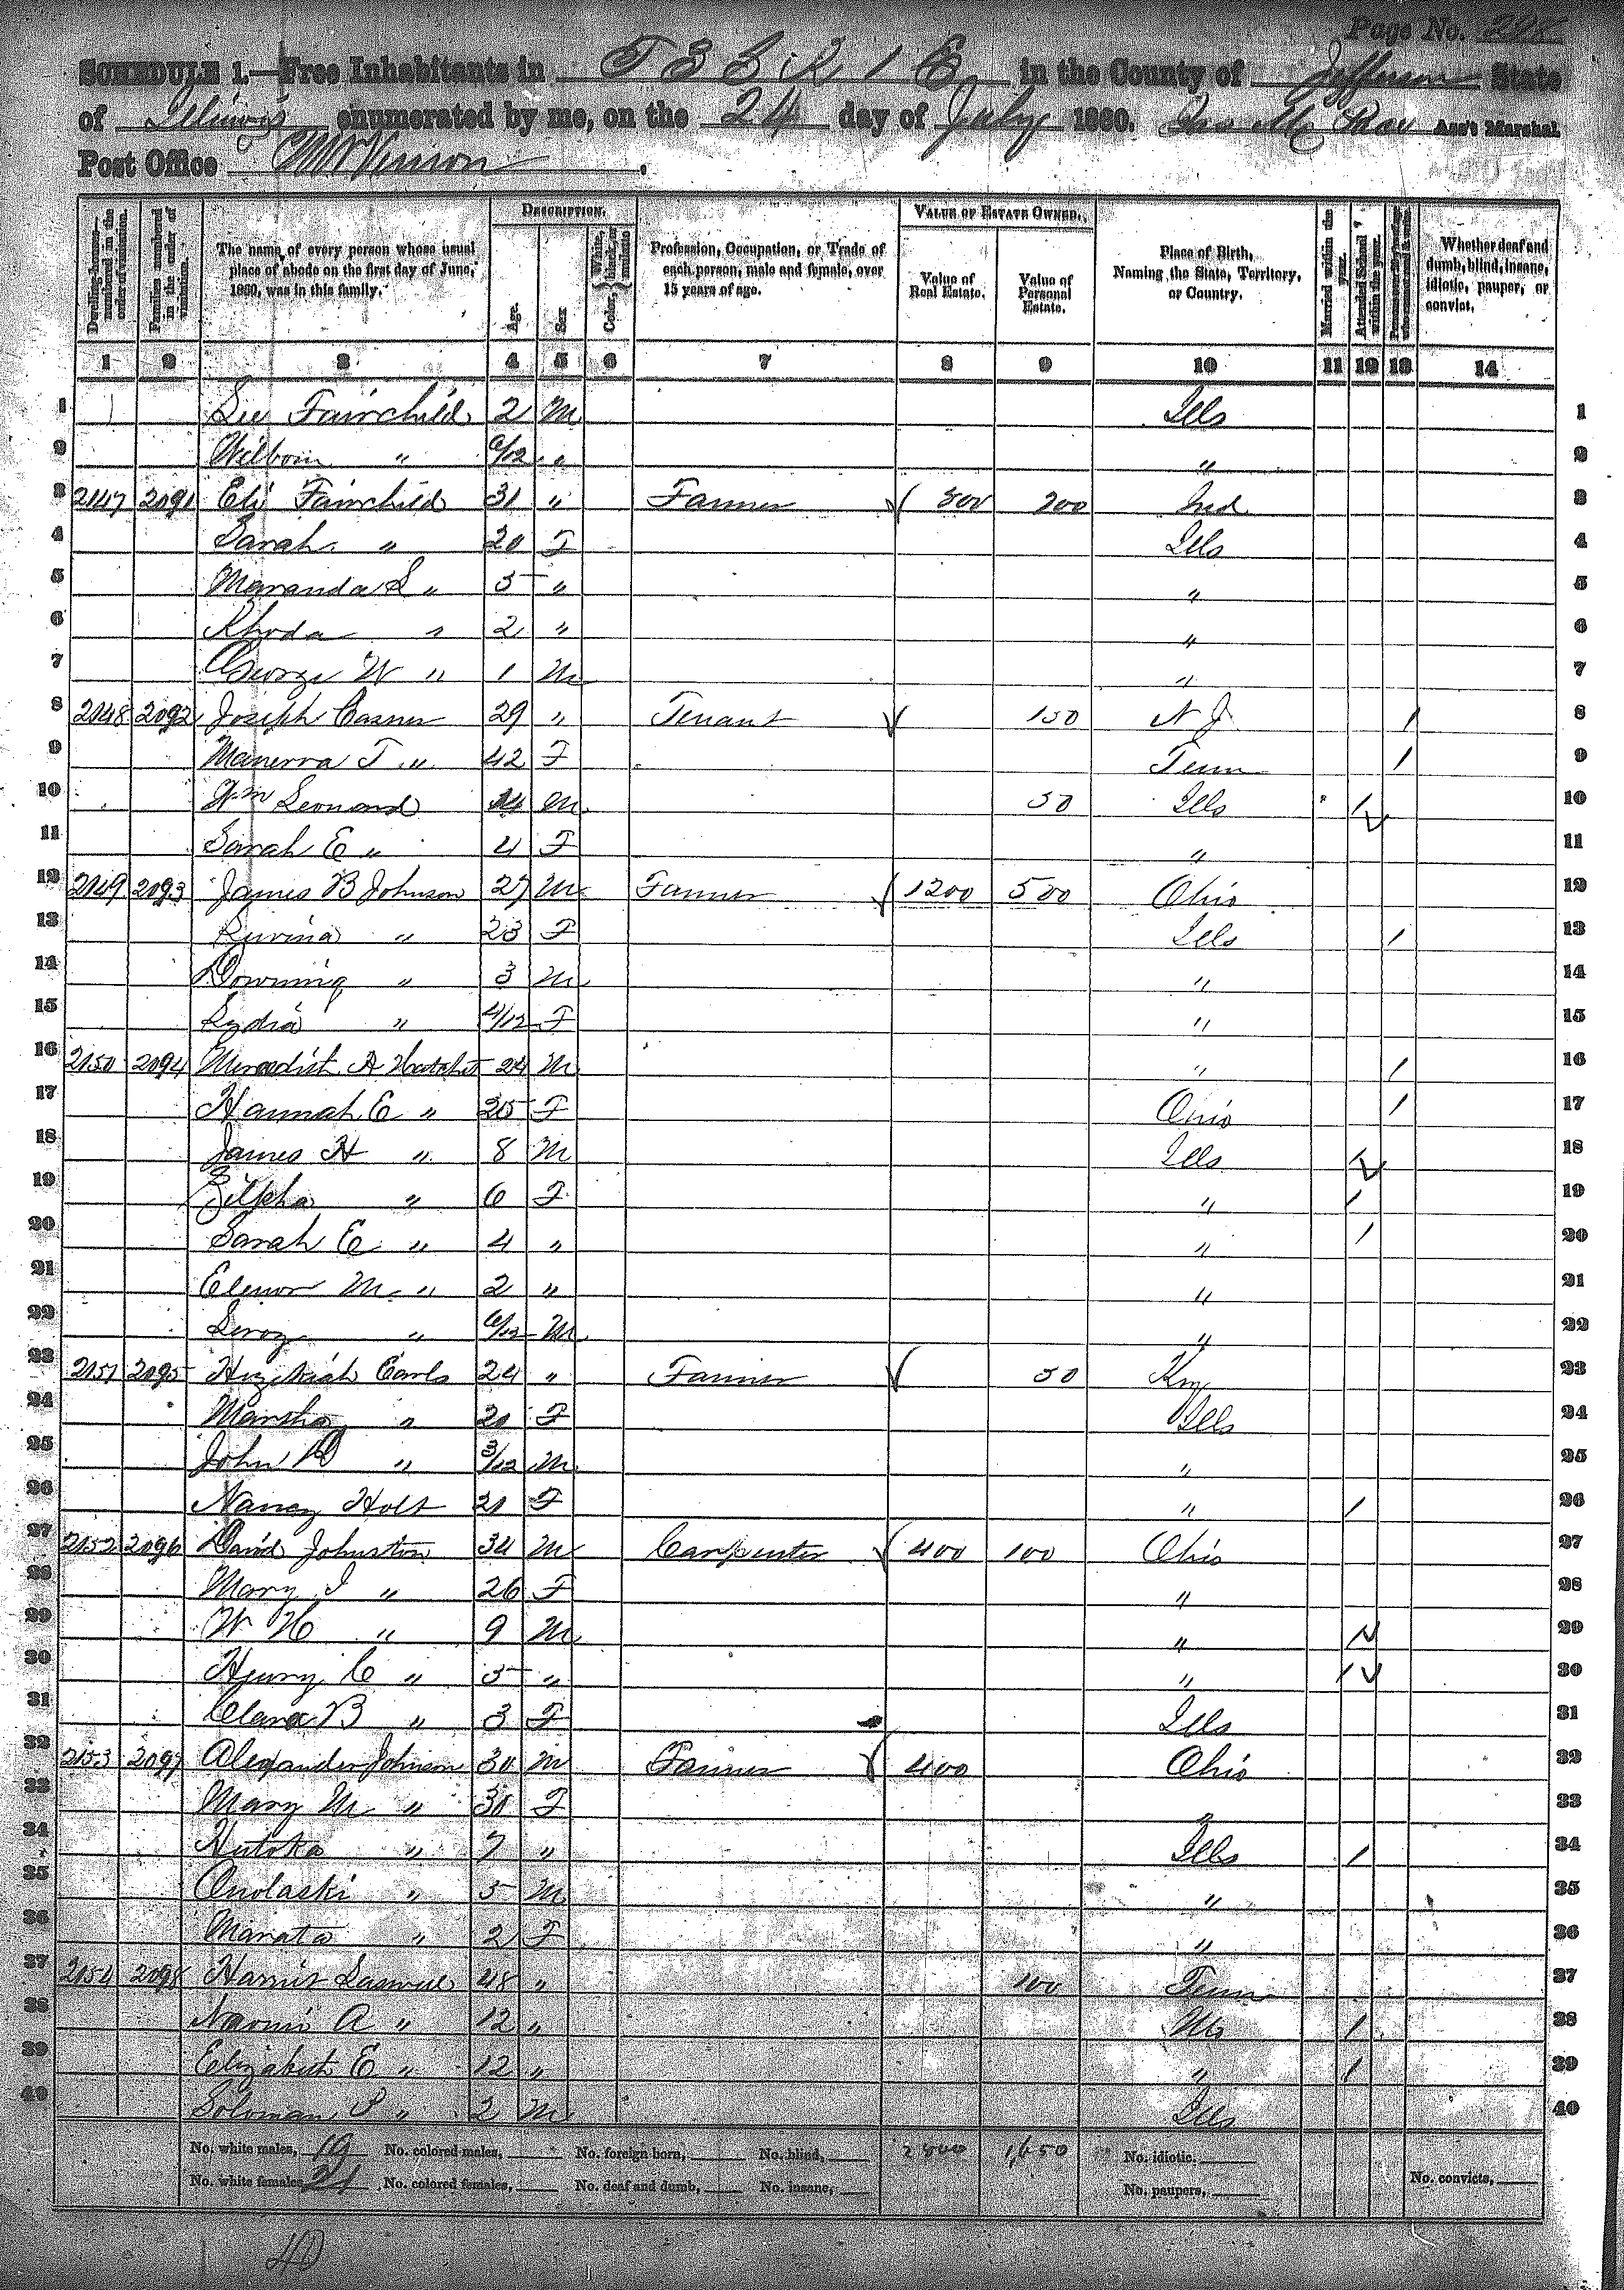 Page No. 298
SCHEDULE 1.—Free Inhabitants in T 3 S R 1 E in the County of Jefferson State
of Illinois enumerated by me, on the 24 day of July 1860. Ass't Marshal.
Post Office Mt Vernon.
Dwelling-houses—numbered in the order of visitation. Families numbered in the order of visitation. The name of every person whose usual place of abode on the first day of June, 1860, was in this family. DESCRIPTION. Age. Sex Color, White, black, or mulatto Profession, Occupation, or Trade of each person, male and female, over 15 years of age. VALUE OF ESTATE OWNED. Value of Real Estate. Value of Personal Estate. Place of Birth, Naming the State, Territory, or Country. Married within the year. Attended School within the year. Whether deaf and dumb, blind, insane, idiotic, pauper, or convict.
1 2 3 4 5 6 7 8 9 10 11 12 13 14
1 Fairchild 2 M Ills 1
2 " 6/12 " " 2
3 2147 2091 Eli Fairchild 31 " Farmer √ 800 200 Ind 3
4 Sarah " 20 F Ills 4
5 Maranda S " 5 " " 5
6 Rhoda " 2 " " 6
7 George W " 1 M " 7
8 2148 2092 Joseph Casner 29 " Tenant √ 150 N J / 8
9 Manerva T " 42 F Tenn / 9
10 Wm Leonard 14 M 50 Ills / √ 10
11 Sarah E " 4 F " 11
12 2149 2093 James B Johnson 27 M Farmer √ 1200 500 Ohio 12
13 Luvina " 23 F Ills / 13
14 Downing " 3 M " 14
15 Lydia " 4/12 F " 15
16 2150 2094 A 24 M " / 16
17 Hannah E " 25 F Ohio / 17
18 James H " 8 M Ills / √ 18
19 Zilpha " 6 F " / 19
20 Sarah E " 4 " " / 20
21 Elenor M " 2 " " 21
22 Leroy " 6/12 M " 22
23 2151 2095 Hezekiah Earls 24 " Farmer √ 50 Ky 23
24 Marsha " 21 F Ills 24
25 John D " 3/12 M " 25
26 Nancy Holt 21 F " / 26
27 2152 2096 David Johnston 34 M Carpenter √ 400 100 Ohio 27
28 Mary J " 26 F " 28
29 W H " 9 M " / √ 29
30 Henry C " 5 " " / √ 30
31 Clara B " 3 F Ills 31
32 2153 2097 Alexander Johnson 30 M Farmer √ 400 Ohio 32
33 Mary M " 30 F " 33
34 Hutoka " 7 " Ills / 34
35 Onolaski " 5 M " 35
36 Manata " 2 F " 36
37 2154 2098 48 " 100 Tenn 37
38 Naomi A " 12 " / 38
39 Elizabeth E " 12 " " / 39
40 Soloman P " 2 M Ills 40
No. white males, 19 No. colored males, No. foreign born, No. blind, 2800 1,650 No. idiotic.
No. white females 21 No. colored females, No. deaf and dumb, No. insane, No. paupers, No. convicts,
40